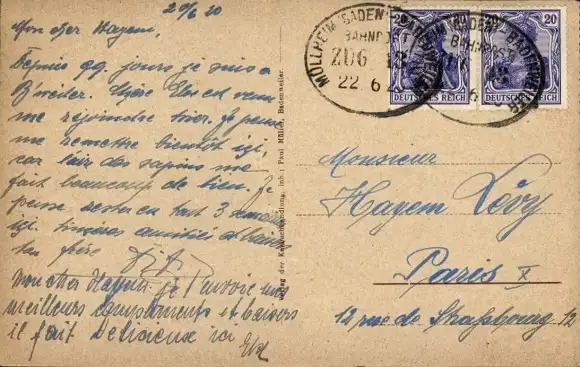 20/6 20
Mon cher Hayem,
Depuis qq. jours je suis a
B'weiler. Chère Elsa est venue
me rejoindre hier. Je pense
me remettre bientôt ici,
car l'air des sapins me
fait beaucoup de bien. Je
pense rester en tout 3 semaines
ici. amitiés et baisers
ton frère
Mon cher Hayem, je t'envoie mes
meilleurs compliments et baisers
il fait délicieuse ici
Verlag der Kunsthandlung, Inh.: Paul Müller, Badenweiler
MÜLLHEIM (BADEN) BADENWEILER
BAHNPOST
ZUG
22 6 20
MÜLLHEIM (BADEN) BADENWEILER
BAHNPOST
20
DEUTSCHES REICH
20
DEUTSCHES REICH
Monsieur
Hayem Lévy
Paris X
12 rue de Strassbourg 12